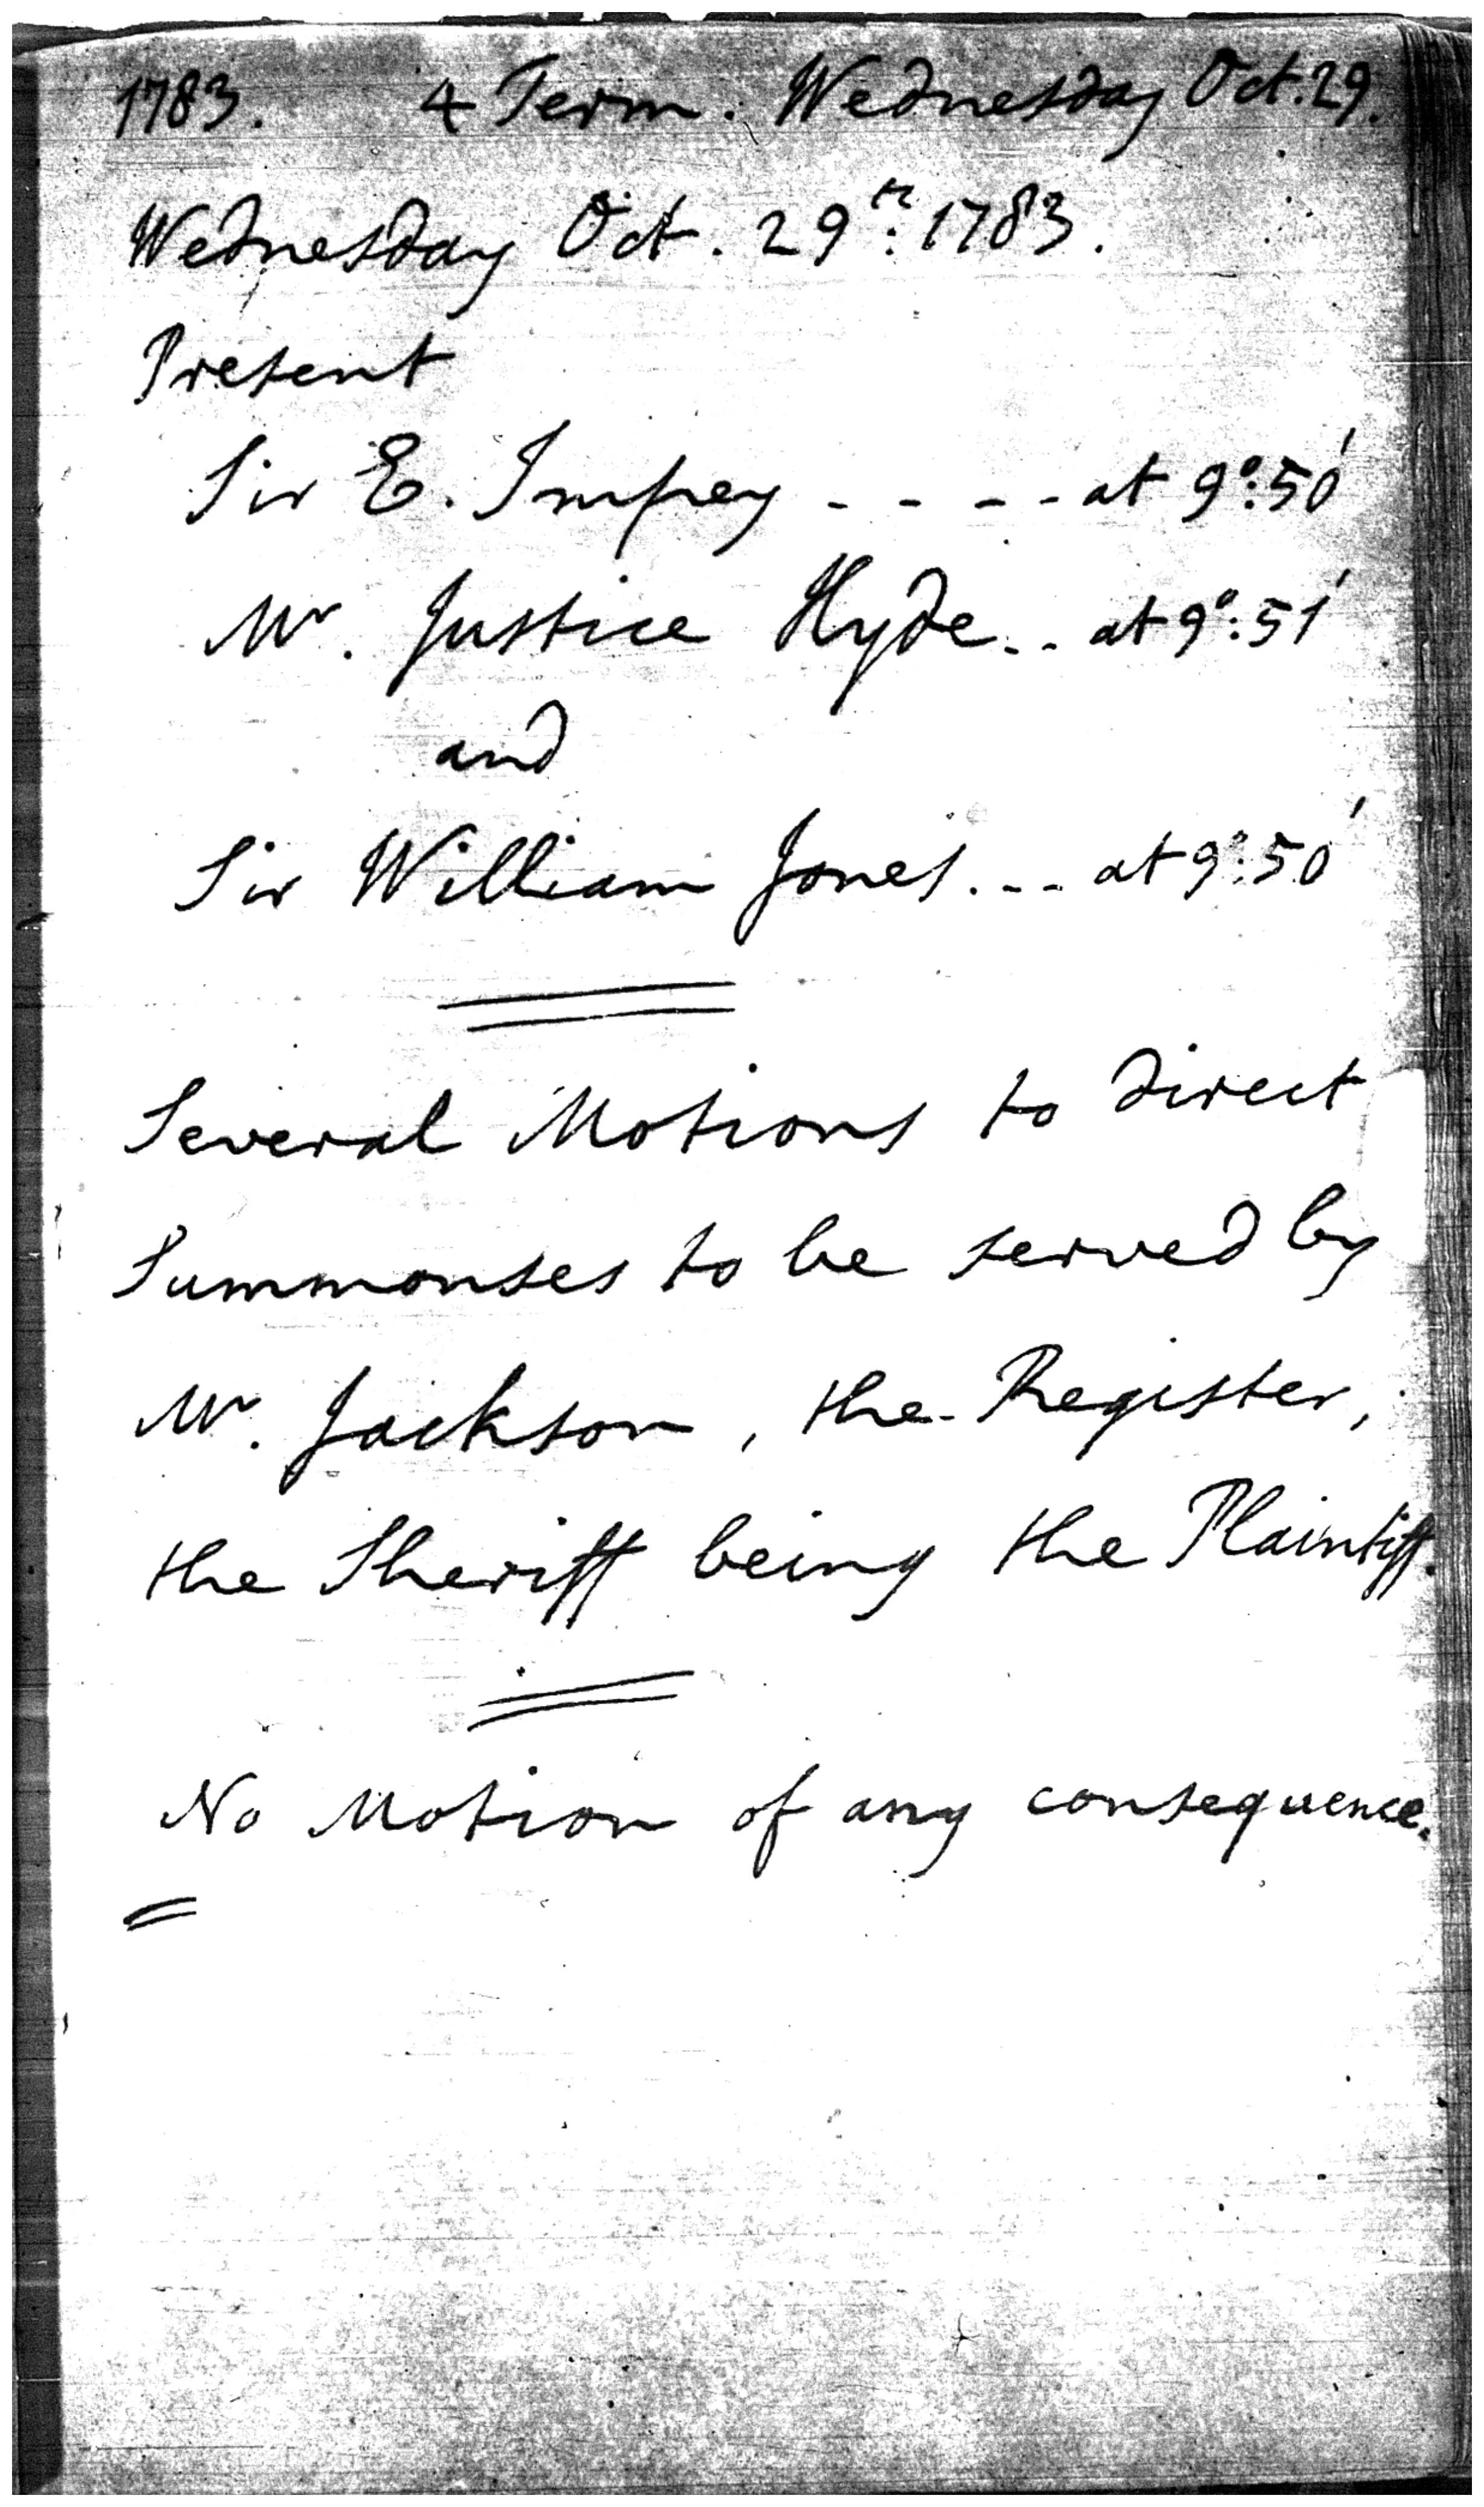 1783. 4 Term. Wednesday Oct. 29.
Wednesday Oct. 29th. 1783.
Present
Sir E. Impey - - - - at 9°: 50'
Mr. Justice Hyde - - at 9°: 51'
and
Sir William Jones. - - at 9°: 50'
Several Motions to direct
Summonses to be served by
Mr. Jackson, the Register,
the Sheriff being the Plaintiff.
No Motion of any consequence.